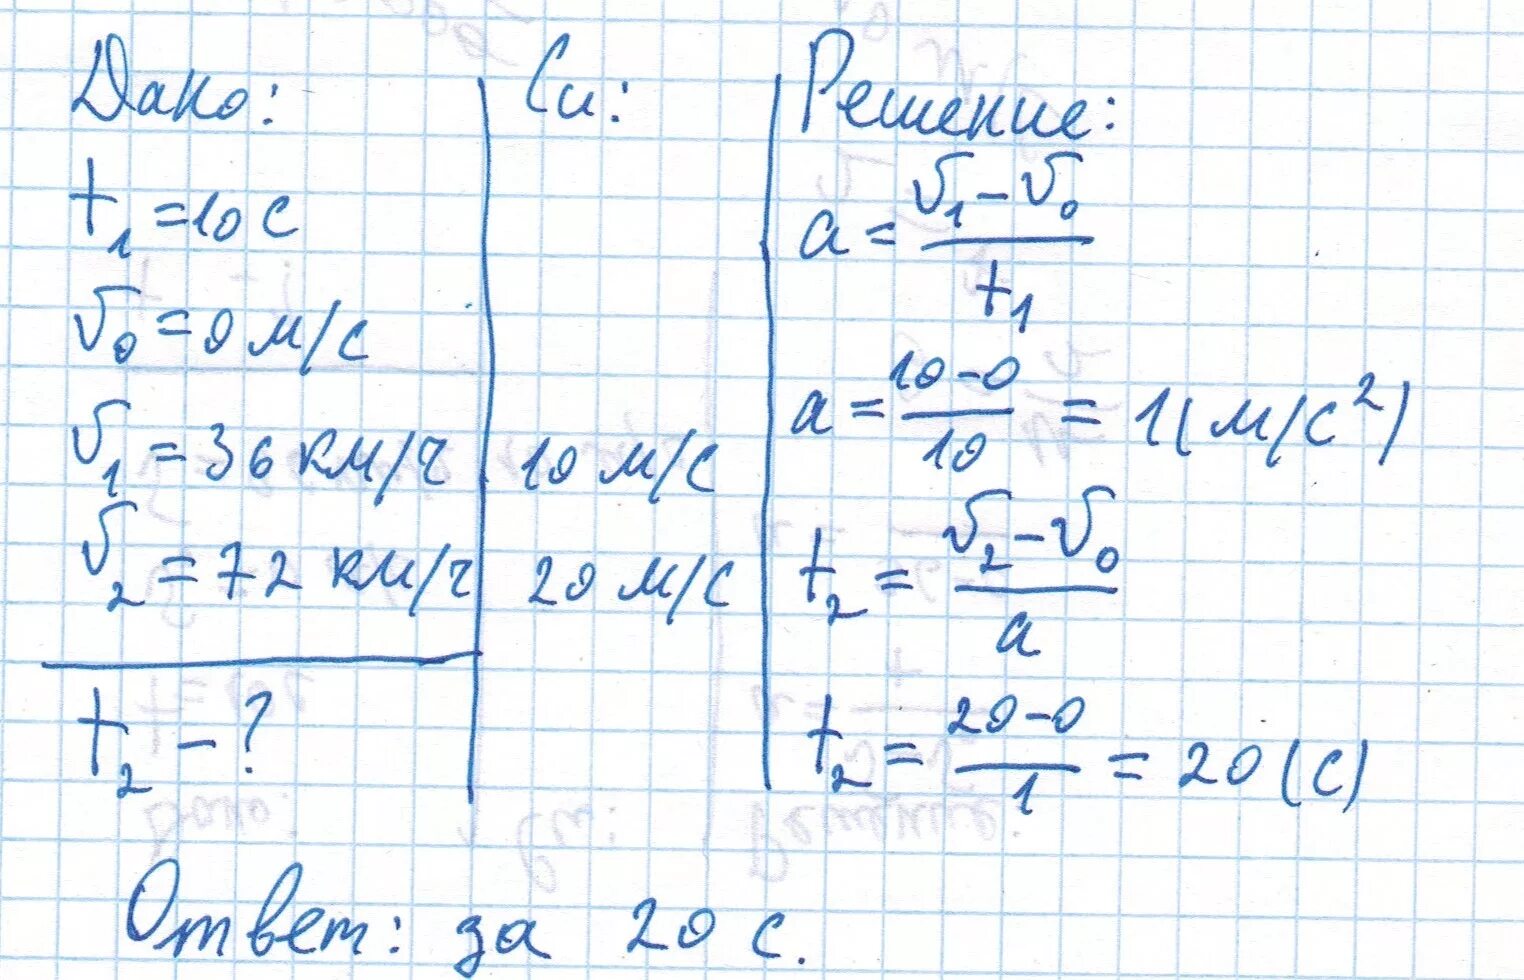 Дано:
t₁ = 10 с
υ₀ = 0 м/с
υ₁ = 36 км/ч
υ₂ = 72 км/ч
t₂ – ?
Си:
10 м/с
20 м/с
Решение:
a = (υ₁ – υ₀) / t₁
a = (10 – 0) / 10 = 1 (м/с²)
t₂ = (υ₂ – υ₀) / a
t₂ = (20 – 0) / 1 = 20 (с)
Ответ: за 20 с.